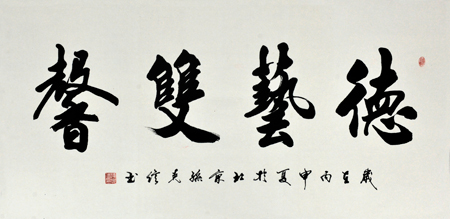 德藝雙馨
歲在丙申夏於北京孫克書